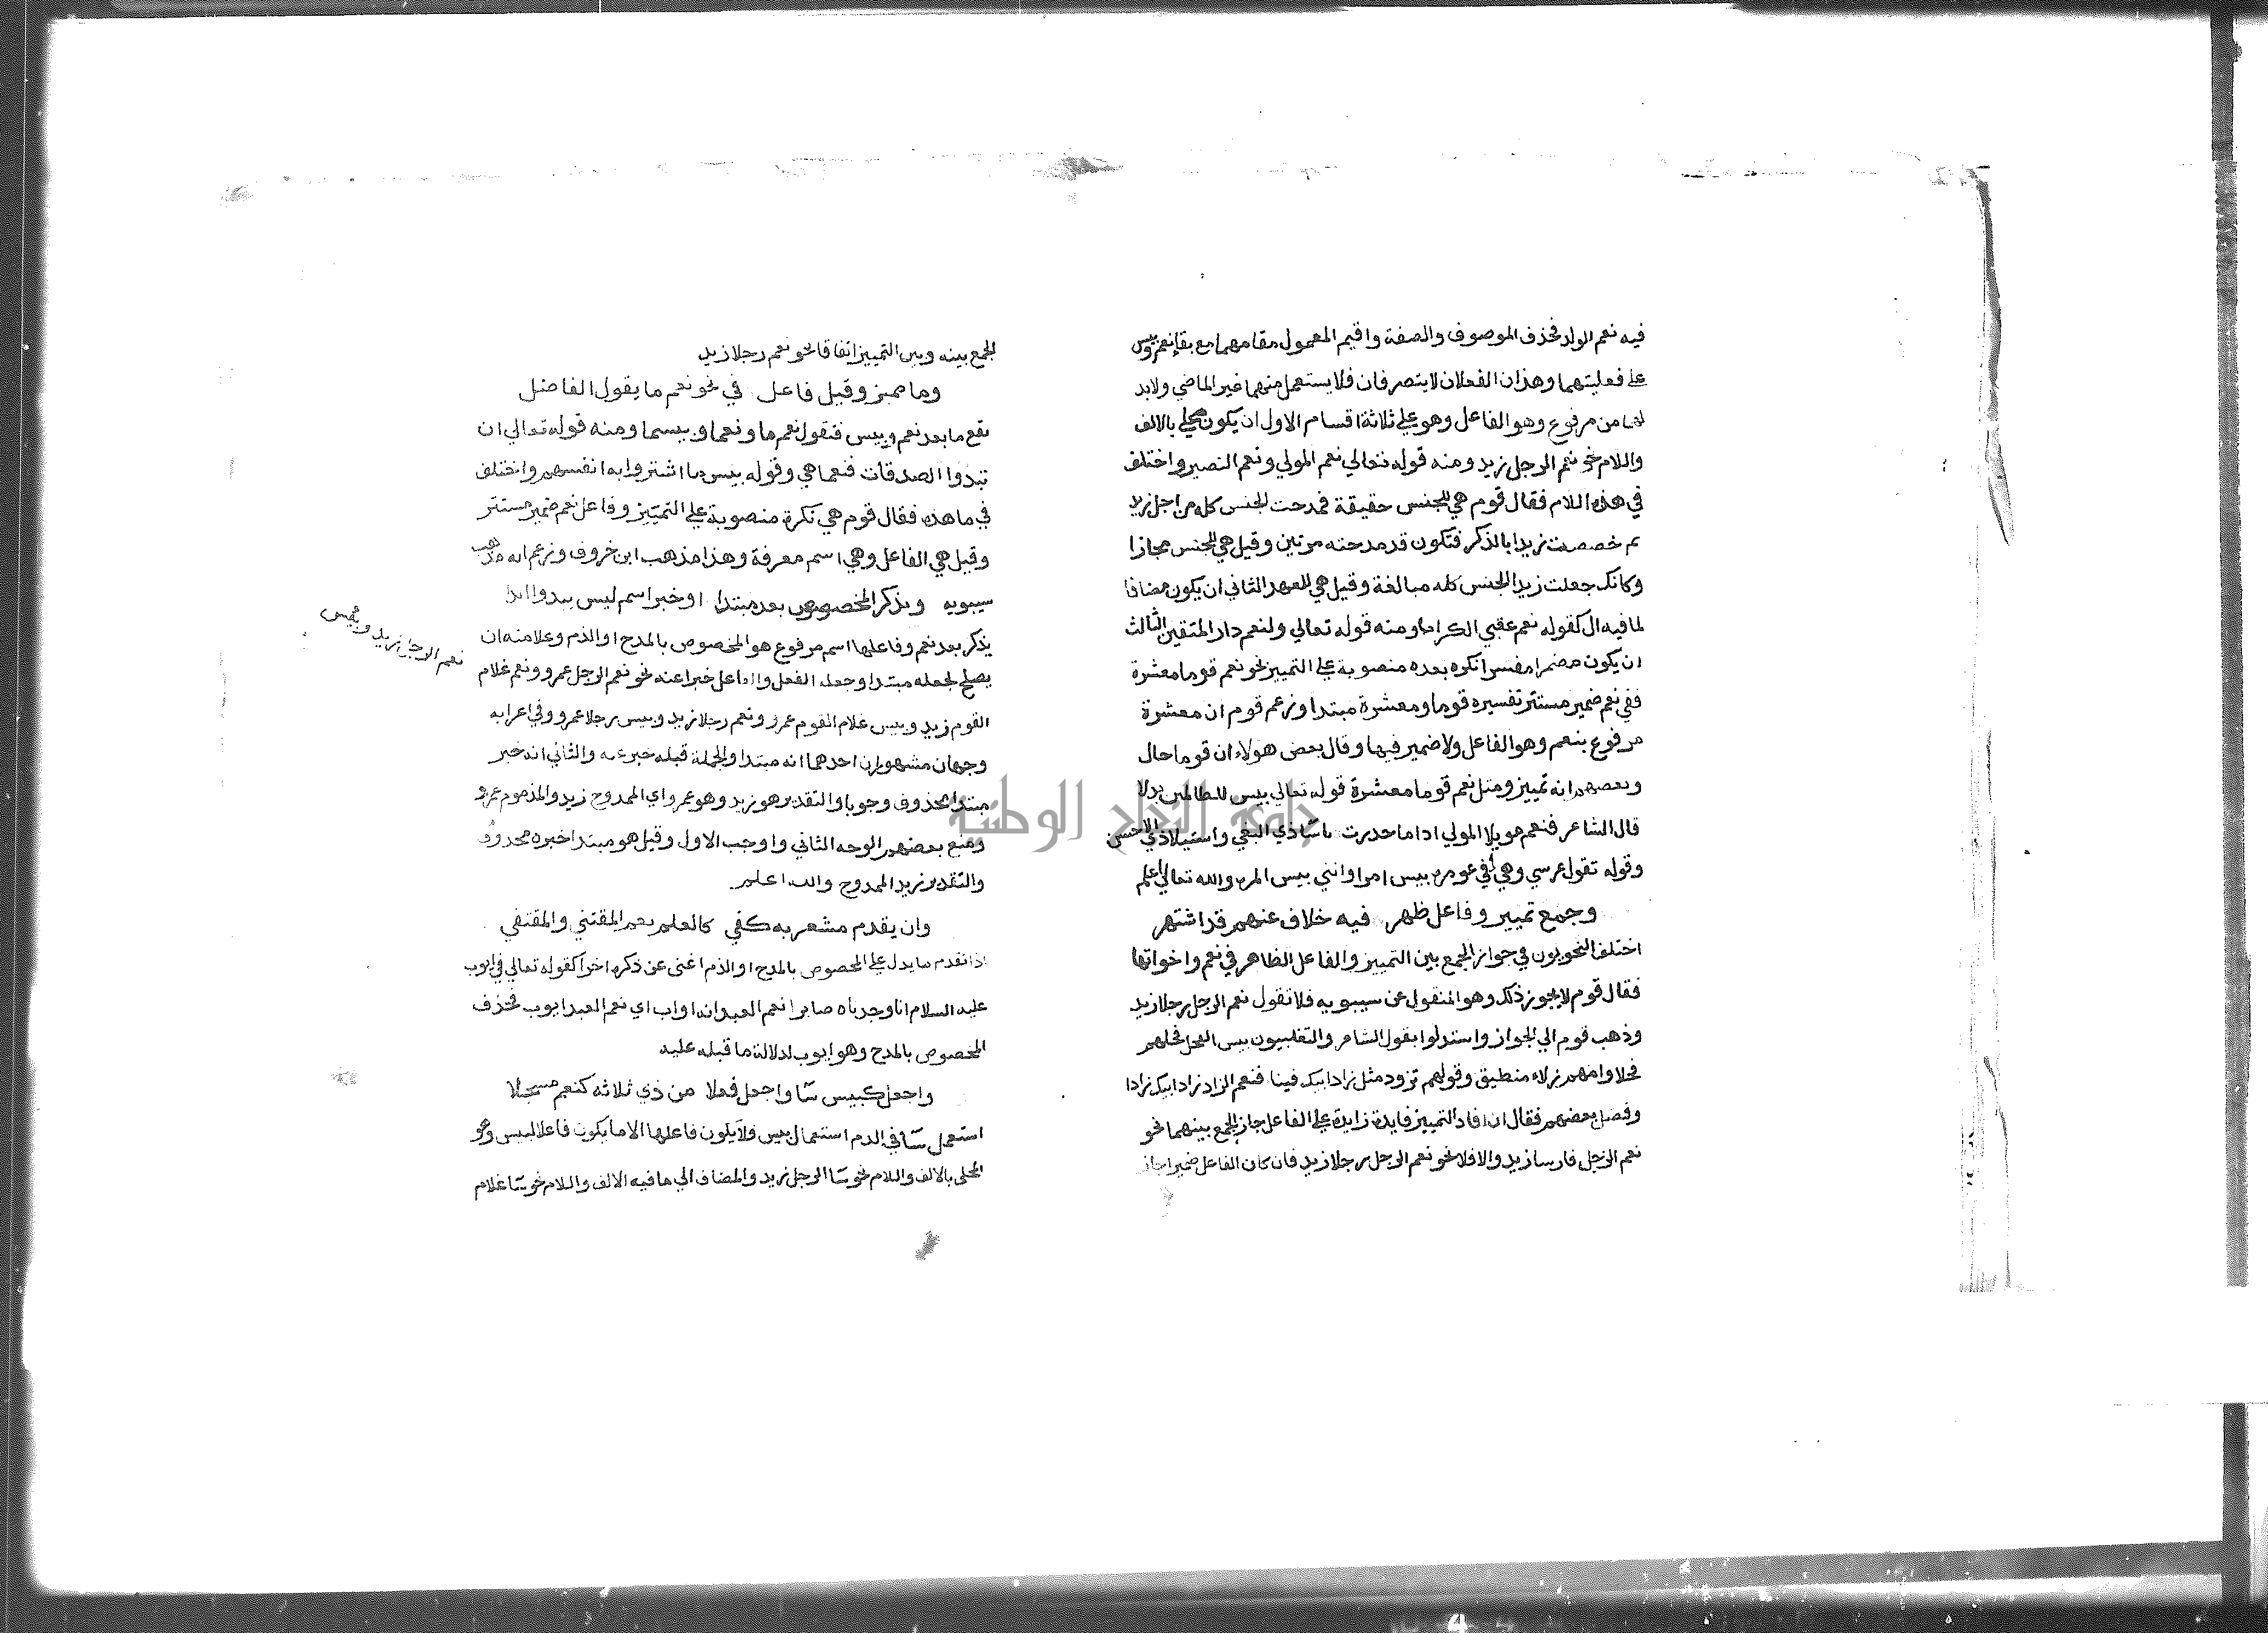 فيه نعم الولد فحذف الموصوف والصفة واقيم المعمول مقامهما مع بقا نعم وبيس
على فعليتهما وهذان الفعلان لايتصرفان فلا يستعمل منهما غير الماضي ولابد
لهما من مرفوع وهو الفاعل وهو على ثلاثة اقسام الاول ان يكون محلى بالالف
واللام نحو نعم الرجل زيد ومنه قوله تعالي نعم المولي ونعم النصير واختلف
في هذه اللام فقال قوم هي للجنس حقيقة فمدحت الجنس كله من اجل زيد
ثم خصصت زيدا بالذكر فتكون قد مدحته مرتين وقيل هي للجنس مجازا
وكانك جعلت زيدا الجنس كله مبالغة وقيل هي للعهد الثاني ان يكون مضافا
لما فيه ال كقوله نعم عقبي الكراما ومنه قوله تعالي ولنعم دار المتقين الثالث
ان يكون مضمرا مفسرا نكره بعده منصوبة على التمييز نحو نعم قوما معشرة
ففي نعم ضمير مستتر تفسيره قوما ومعشرة مبتدا وزعم قوم ان معشرة
مرفوع بنعم وهو الفاعل ولا ضمير فيها وقال بعض هولاء ان قوما حال
وبعضهم انه تمييز ومثل نعم قوما معشرة قوله تعالي بيس للظالمين بدلا
قال الشاعر فنعم مويلا المولي اذا ما حذرت باسا ذي البغي واستيلا ذي الاحسن
وقوله تقول عرسي وهي لي في عومره بيس امرا وانني بيس المره والله تعالي اعلم
وجمع تمييز وفاعل ظهر فيه خلاف عنهم قد اشتهر
اختلف النحويون في جواز الجمع بين التمييز والفاعل الظاهر في نعم واخواتها
فقال قوم لايجوز ذلك وهو المنقول عن سيبويه فلا تقول نعم الرجل رجلا زيد
وذهب قوم الي الجواز واستدلوا بقول الشاعر والتغلبيون بيس الفحل فحلهم
فحلا وامهم زلاء منطيق وقولهم تزود مثل زاد ابيك فينا فنعم الزاد زاد ابيك زادا
وفصل بعضهم فقال ان افاد التمييز فايدة زايدة على الفاعل جاز الجمع بينهما نحو
نعم الرجل فارسا زيد والا فلا نحو نعم الرجل رجلا زيد فان كان الفاعل ضميرا جاز
الجمع بينه وبين التمييز اتفاقا نحو نعم رجلا زيد
وما مميز وقيل فاعل في نحو نعم ما يقول الفاضل
تقع ما بعد نعم وبيس فتقول نعم ما ونعما وبيسما ومنه قوله تعالي ان
تبدوا الصدقات فنعما هي وقوله بيس ما اشتروا به انفسهم واختلف
في ما هذه فقال قوم هي نكرة منصوبة على التمييز وفاعل نعم ضمير مستتر
وقيل هي الفاعل وهي اسم معرفة وهذا مذهب ابن خروف وزعم انه مذهب
سيبويه ويذكر المخصوص بعد مبتدا او خبر اسم ليس يبدوا ابدا
يذكر بعد نعم وفاعلها اسم مرفوع هو المخصوص بالمدح او الذم وعلامته ان
يصلح لجعله مبتدا وجعله الفعل والفاعل خبرا عنه نحو نعم الرجل عمرو ونعم غلام
نعم الرجل زيد وبيس
القوم زيد وبيس غلام القوم عمرو ونعم رجلا زيد وبيس رجلا عمرو وفي اعرابه
وجهان مشهوران احدهما انه مبتدا والجملة قبله خبرعنه والثاني انه خبر
مبتدا محذوف وجوبا والتقدير هو زيد وهو عمرو اي الممدوح زيد والمذموم عمرو
ومنع بعضهم الوجه الثاني واوجب الاول وقيل هو مبتدا خبره محذوف
والتقدير زيد الممدوح والله اعلم
وان يقدم مشعر به كفي كالعلم نعم المقتني والمقتفي
اذا تقدم ما يدل على المخصوص بالمدح او الذم اغنى عن ذكره اخرا كقوله تعالي في ايوب
عليه السلام انا وجدناه صابرا نعم العبد انه اواب اي نعم العبد ايوب فحذف
المخصوص بالمدح وهو ايوب لدلالة ما قبله عليه
واجعل كبيس سا واجعل فعلا من ذي ثلاثه كنعم مسجلا
استعمل سا في الذم استعمال بيس فلا يكون فاعلها الا ما يكون فاعلا لبيس وهو
المحلى بالالف واللام نحو سا الرجل زيد والمضاف الي ما فيه الالف واللام نحو سا غلام
جامعة النجاح الوطنية